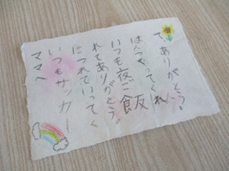 ママへ
いつもサッカー
につれていってく
れてありがとう。
いつも夜ご飯
はんつくってくれ
てありがとう。